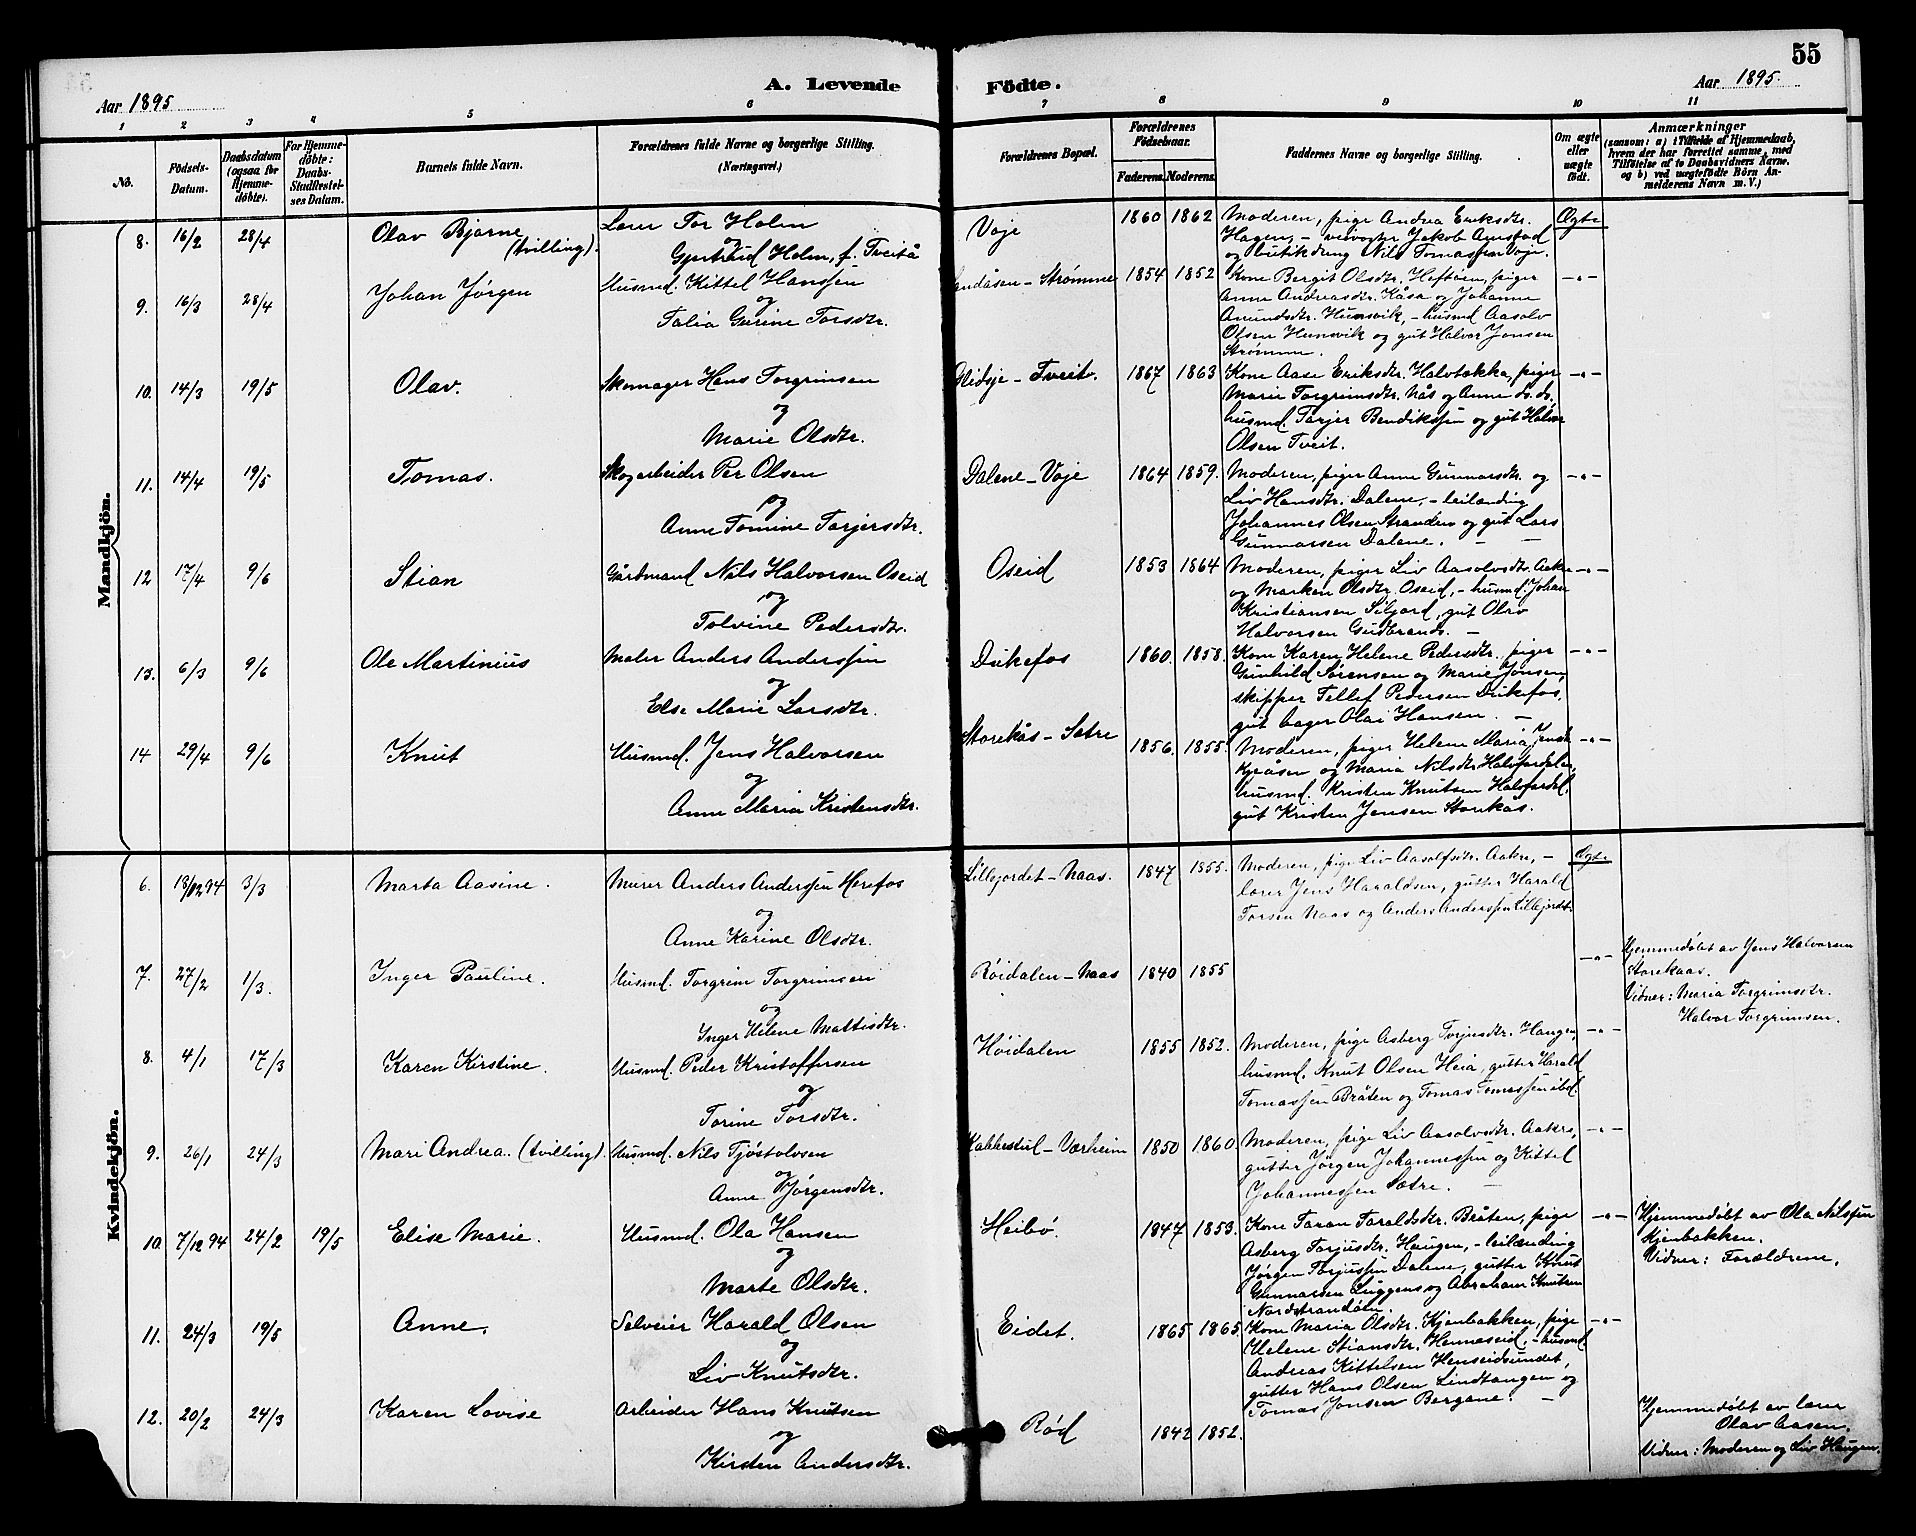 55
Aar 1895
A. Levende
Födte.
Aar 1895.
1 2 3 4 5 6 7 8 9 10 11
No.
Födsels-
Datum.
Daabsdatum
(ogsaa for
Hjemme-
døbte).
For Hjemme-
døbte:
Daabs-
Stadfæstel-
ses Datum.
Barnets fulde Navn.
Forældrenes fulde Navne og borgerlige Stilling.
(Næringsvei.)
Forældrenes Bopæl.
Forældrenes
Födselsaar.
Faderens. Moderens.
Faddernes Navne og borgerlige Stilling.
Om ægte
eller
uægte
født.
Anmærkninger
(saasom: a) i Tilfælde af Hjemmedaab,
hvem der har forrettet samme, med
Tilføielse af to Daabsvidners Navne,
og b) ved uægtefödte Börn An-
melderens Navn m. V.)
Mandkjön.
8. 16/2 28/4 Olav Bjarne (tvilling). Lærer Tor Holm
og
Gjertrud Holm, f. Tveitå
Voje 1860 1862 Moderen, pige Andrea Eriksdtr.
Hagen, - veivogter Jakob Aanstad
og butikdreng Nils Tomassen Voje.
Ægte
9. 16/3 28/4 Johan Jørgen Husmd. Kittel Hanssen
og
Talia Gurine Torsdtr.
Sandåsen - Strømme 1854 1852 Kone Bergit Olsdtr. Heftøen, piger
Anne Andreasdtr. Kåsa og Johanne
Amundsdtr. Hunsvik, - husmd Aasolv
Olsen Hunsvik og gut Halvor Jensen
Strømme.
-"-
10. 14/3 19/5 Olav. Skomager Hans Torgrimsen
og
Marie Olsdtr.
Glidsje - Tveit. 1867 1863 Kone Aase Eriksdtr. Halvtækka, piger
Marie Torgrimsdtr. Nås og Anne ds. ds.
husmd. Tarjer Bendikssen og gut Halvor
Olsen Tveit.
-"-
11. 14/4 19/5 Tomas. Skogarbeider Per Olsen
og
Anne Tomine Tarjersdtr.
Dalene - Voje 1864 1859. Moderen, piger Anne Gunnarsdtr. og
Liv Hansdtr. Dalene, - leilænding
Johannes Olsen Stranden og gut Lars
Gunnarsen Dalene. -
-"-
12 17/4 9/6 Stian Gårdmand Nils Halvorsen Oseid
og
Tolvine Pedersdtr.
Oseid 1853 1864 Moderen, piger Liv Aasolvsdtr. Aakre
og Marken Olsdtr. Oseid, - husmd. Johan
Kristiansen Siljord, gut Olav
Halvorsen Gudbrands. -
-"-
13. 6/3 9/6 Ole Martinius Maler Anders Anderssen
og
Else Marie Larsdtr.
Dukefos 1860. 1858. Kone Karen Helene Pedersdtr. piger
Gunhild Sörensen og Marie Jensen,
skipper Tellef Pedersen Dukefos,
gut Aager Olai Hansen. -
-"-
14 29/4 9/6 Knut Husmd. Jens Halvorsen
og
Anne Maria Kristensdtr.
Storekås - Sætre 1856. 1855. Moderen, piger Helene Maria Jensdtr.
Kjeåsen og Maria Nilsdtr Halvfardalen,
husmd. Kristen Knutsen Halvfardal,
gut Kristen Jensen Storekås.
-"-
Kvindekjön.
6. 13/12 94 3/3 Marta Aasine. Murer Anders Anderssen Herefos
og
Anne Karine Olsdtr.
Lillejordet - Naas. 1847 1855. Moderen, pige Liv Aasolfsdtr. Aakre, -
lærer Jens Haraldsen, gutter Harald
Torsen Naas og Anders Anderssen Lillejordet
Ægte
7. 27/2 1/3. Inger Pauline. Husmd. Torgrim Torgrimsen
og
Inger Helene Mattisdtr.
Røidalen - Naas 1840 1855
-"-
Hjemmedöbt av Jens Halvorsen
Storekaas.
Vidner: Maria Torgrimsdtr.
Halvor Torgrimsen.
8. 4/1 17/3 Karen Kirstine. Husmd. Peder Kristoffersen
og
Torine Torsdtr.
Høidalen 1855 1852. Moderen, pige Asberg Torjusdtr. Haugen,
husmd. Knut Olsen Heia, gutter Harald
Tomassen Bråten og Tomas Tomassen ibd.
-"-
9. 26/1 24/3 Mari Andrea. (tvilling). Husmd. Nils Tjöstolvsen
og
Anne Jørgensdtr.
Kabbestul - Værheim 1850 1860. Moderen, pige Liv Aasolvsdtr. Aakre,
gutter Jørgen Johannessen og Kittel
Johannessen Sætre. -
-"-
10. 7/12 94 24/2 19/5 Elise Marie. Husmd. Ola Hansen
og
Marte Olsdtr.
Heibö. 1847 1853. Kone Taran Taraldsdtr. Bråten, pige
Asberg Torjusdtr. Haugen, - leilænding
Jörgen Torjussen Dalene, gutter Knut
Gunnarsen Luggens og Abraham Knutsen
Nordstrandøln.
-"-
Hjemmedöbt av Ola Nilssen
Kjenbakken.
Vidner: Forældrene.
11. 24/3 19/5 Anne. Selveier Harald Olsen
og
Liv Knutsdtr.
Eidet. 1865 1865. Kone Maria Olsdtr. Kjenbakken, pige
Helene Stiansdtr. Henneseid, - husmd.
Andreas Kittelsen Henseidsundet,
gutter Hans Olsen Lindtangen og
Tomas Jensen Bergane. -
-"-
12. 20/2 24/3 Karen Lovise Arbeider Hans Knutsen
og
Kirsten Andersdtr.
Rød 1842 1852.
Hjemmedöbt av lærer
Olav Aasen.
Vidner: Moderen og Liv Haugen.